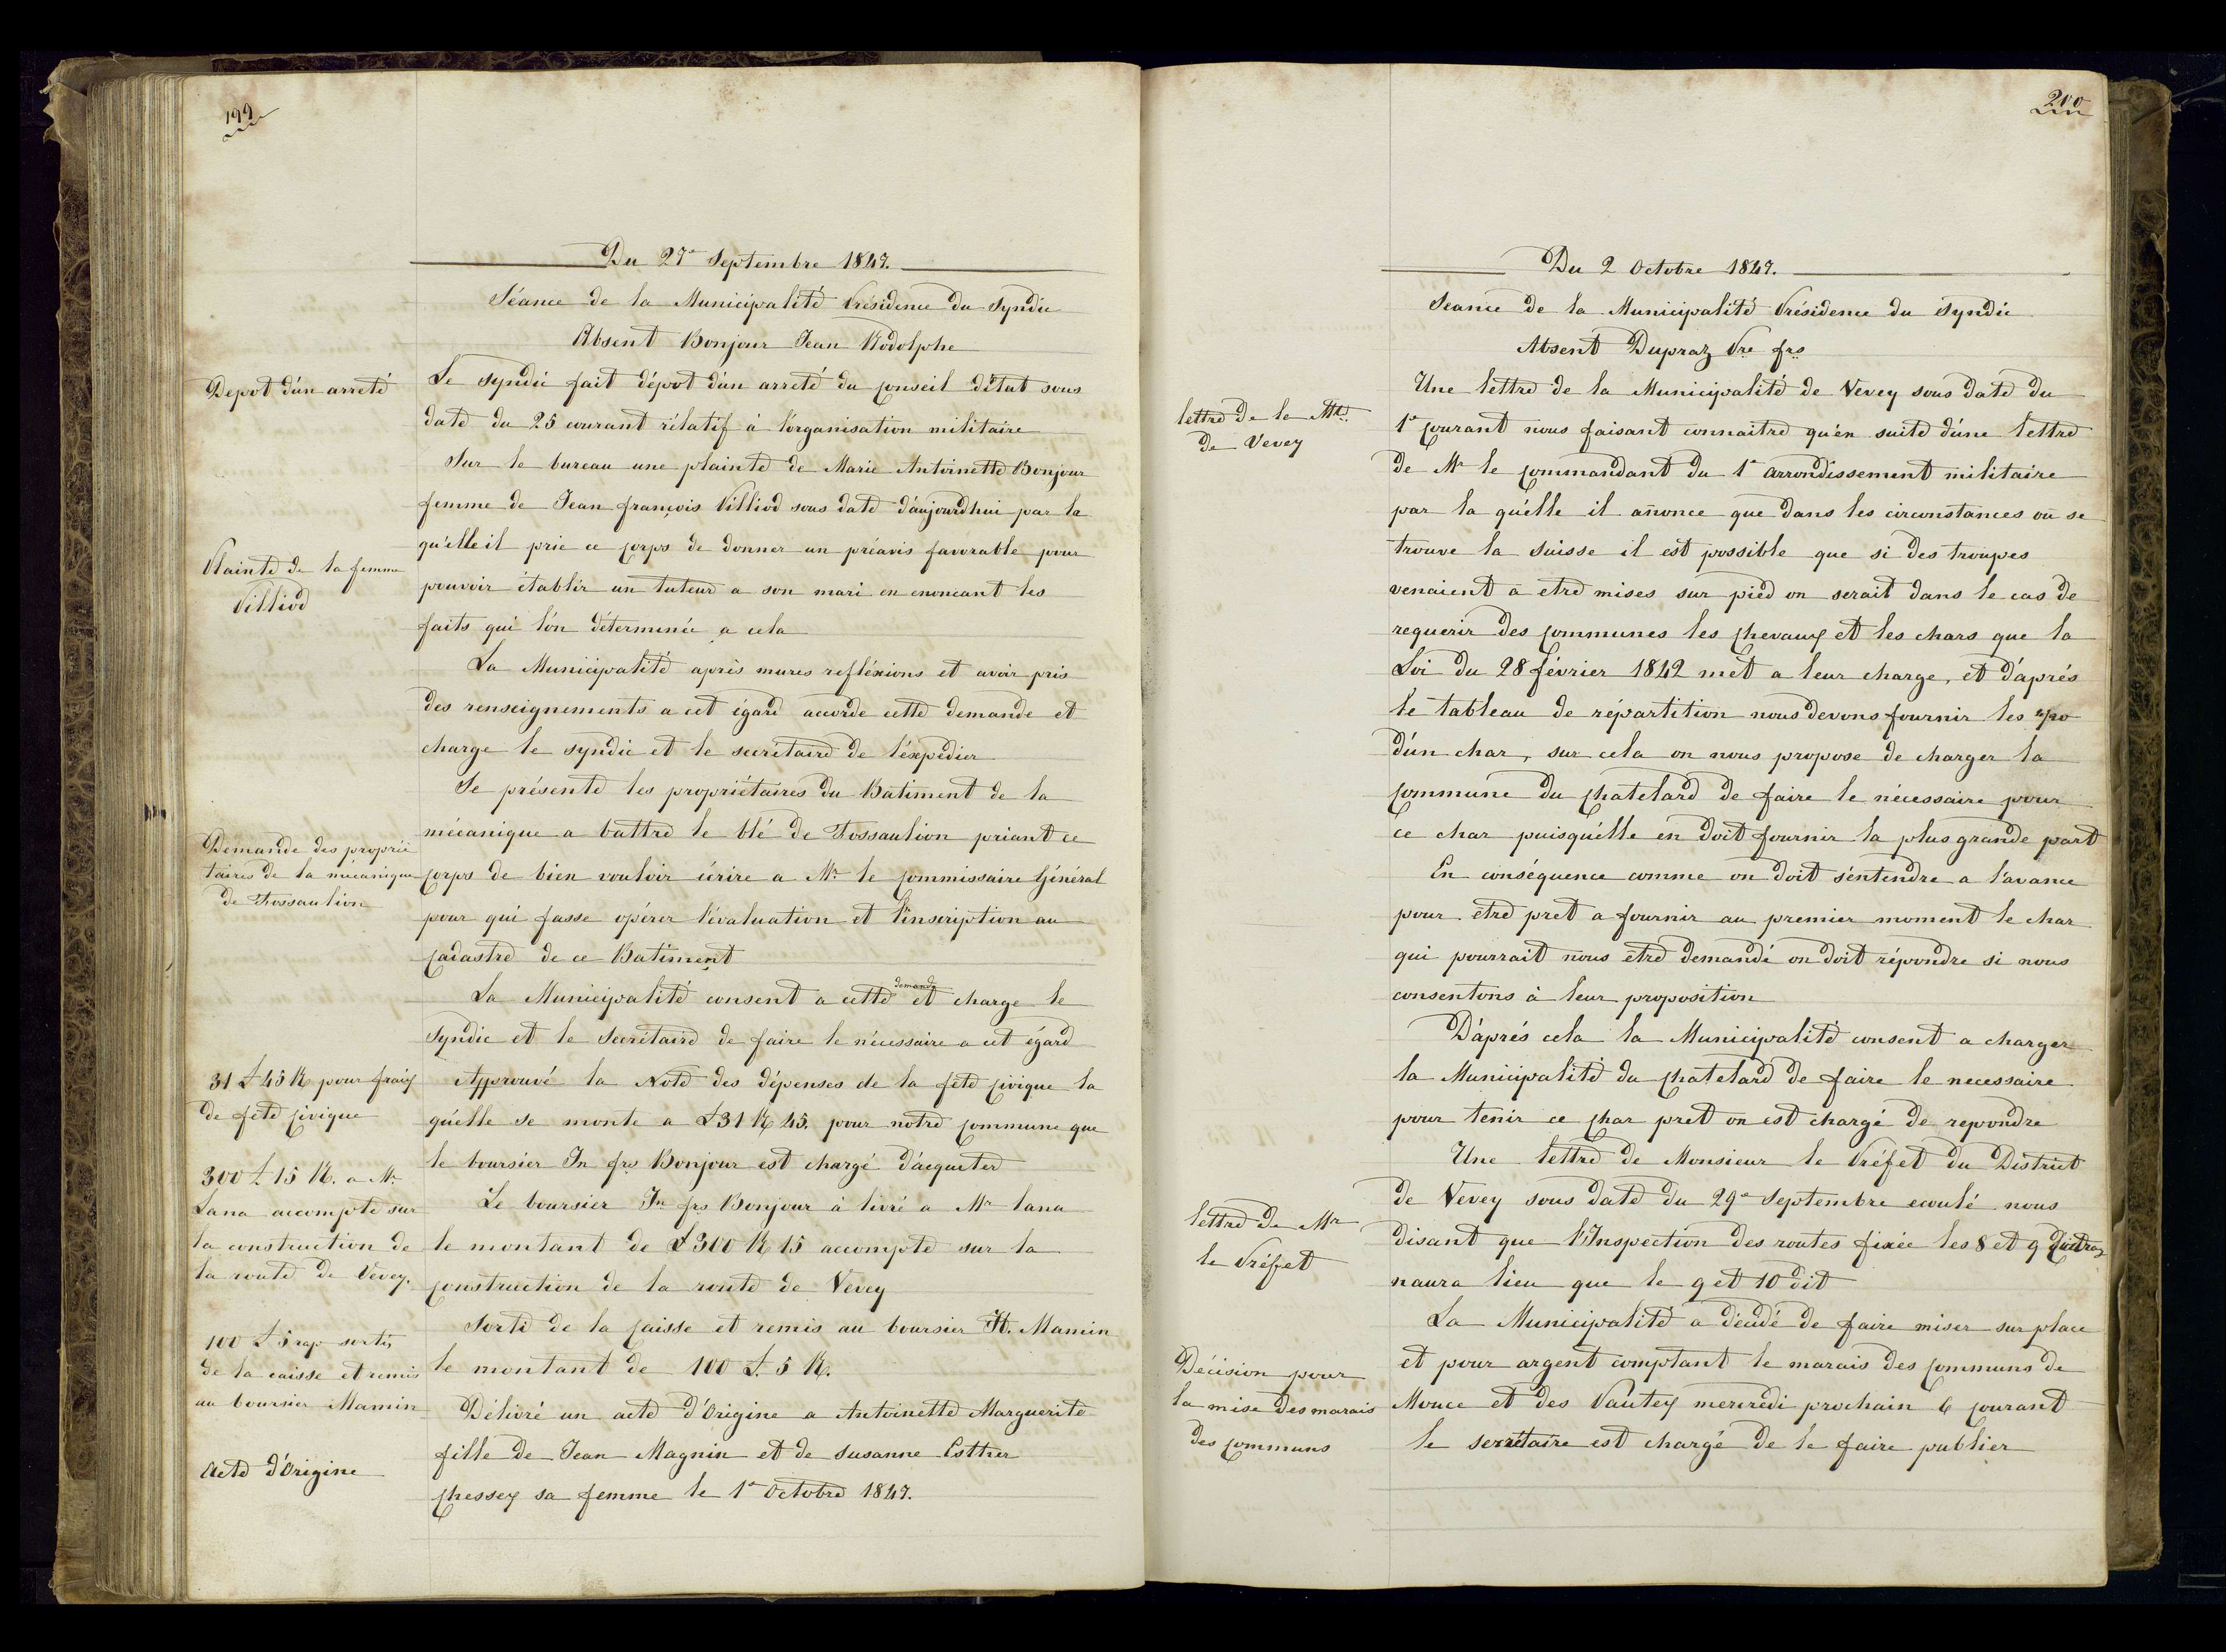 199
Du 27e Septembre 1847.
Séance de la Municipalité Présidence du Syndic
Absent Bonjour Jean Rodolphe
Depot d'un arreté
Le Syndic fait dépot d'un arreté du Conseil d'Etat sous
date du 25 courant rélatif à l'organisation militaire
Plainte de la femme
Villiod
Sur le bureau une plainte de Marie Antoinette Bonjour
femme de Jean françois Villiod sous date d'aujourdhui par la
qu'elle il prie ce Corps de donner un préavis favorable pour
pouvoir établir un tuteur a son mari en enoncant les
faits qui l'on déterminée a cela
La Municipalité après mures refléxions et avoir pris
des renseignements a cet égard accorde cette demande et
charge le syndic et le secrétaire de l'éxpédier
Demande des proprié
taires de la mécanique
de Fossaulion
Se présente les propriétaires du Batiment de la
mécanique a battre le blé de Fossaulion priant ce
Corps de bien vouloir écrire a Mr le Commissaire Général
pour qui fasse opérer l'évaluation et l'inscription au
Cadastre de ce Batiment
La Municipalité consent a cette demande et charge le
Syndic et le Secrétaire de faire le nécessaire a cet égard
31 £ 45 R pour fraix
de fete Civique
Approuvé la Note des dépenses de la fete Civique la
qu'elle se monte a £31 R 45. pour notre Commune que
le boursier Jn frs Bonjour est chargé d'acqueter
300 £ 15 R. a Mr
Lana accompte sur
la construction de
la route de Vevey.
Le boursier Jn frs Bonjour à livré a Mr lana
le montant de £300 R 15 accompte sur la
Construction de la route de Vevey
100 £ 5 rap sortis
de la caisse et remis
au boursier Mamin
Sorti de la Caisse et remis au boursier H. Mamin
le montant de 100 £. 5 R.
Acte d'Origine
Délivré un acte d'Origine a Antoinette Marguerite
fille de Jean Magnin et de Susanne Esther
Chessex sa femme le 1er Octobre 1847.
200
Du 2 Octobre 1847.
Seance de la Municipalité Présidence du Syndic
Absent Dupraz Pre frs
lettre de le Mté
de Vevey
Une lettre de la Municipalité de Vevey sous date du
1er Courant nous faisant connaitre qu'en suite d'une lettre
de Mr le Commandant du 1er arrondissement militaire
par la qu'elle il anonce que dans les circonstances où se
trouve la Suisse il est possible que si des troupes
venaient a etre mises sur pied on serait dans le cas de
requerir des Communes les Chevaux et les chars que la
Loi du 28 février 1842 met a leur charge, et d'aprés
le tableau de répartition nous devons fournir les
d'un char, sur cela on nous propose de charger la
Commune du Chatelard de faire le nécessaire pour
ce char puisqu'elle en doit fournir la plus grande part
En conséquence comme on doit s'entendre a l'avance
pour être pret a fournir au premier moment le char
qui pourrait nous être demandé on doit répondre si nous
consentons à leur proposition
D'aprés cela la Municipalité consent a charger
la Municipalité du Chatelard de faire le necessaire
pour tenir ce Char pret on est chargé de repondre
lettre de Mr
le Préfet
Une lettre de Monsieur le Préfet du District
de Vevey sous date du 29e Septembre ecoulé nous
disant que l'Inspection des routes fixée les 8 et 9
naura lieu que le 9 et 10 dit
Décision pour
la mise des marais
des Communs
La Municipalité a décidé de faire miser sur place
et pour argent comptant le marais des Communs de
Mouce et des Vautey mercredi prochain 6 Courant
le secrétaire est chargé de le faire publier